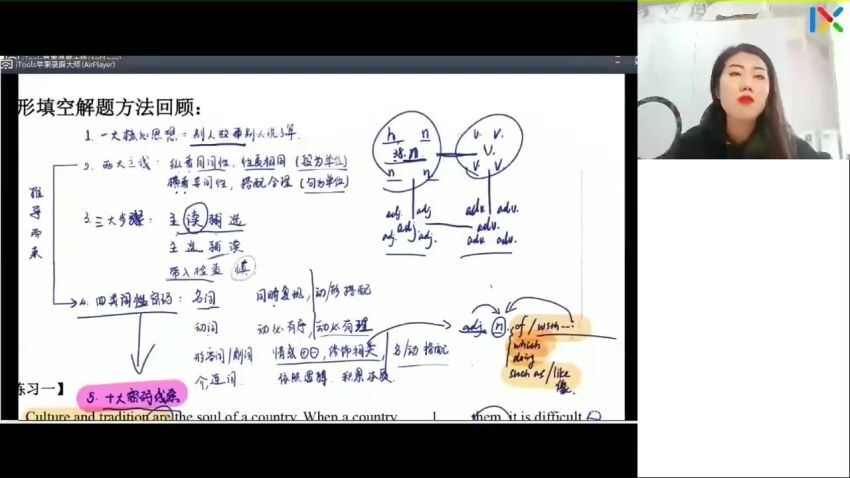 iTools苹果录屏大师(AirPlayer)
iTools苹果录屏大师(AirPlayer)
形填空解题方法回顾:
1. 一大核心思想:别人故事别人说了算.
2. 两大主线: 纵看同词性, 性质相同 (段为单位)
横看异词性, 搭配合理 (句为单位)
推导而来
3. 三大步骤: 主读辅选
主选辅读
带入检查 慎
4. 四类词性密码: 名词 同畴复现, 动/形搭配
动词 动必有序, 动必有理
形容词/副词 情感⊕⊖, 修饰相关, 名/动搭配
介,连词 依照逻辑.
5. 十大密码线索
n n
n n
v. v.
v.
v v
adj. adj
adj.
adj. adj.
adv. adv.
adv.
adv. adv.
adj. n. of / with...
which
doing
such as / like
像.
练习一】
Culture and tradition are the soul of a country. When a country 1 them, it is difficult